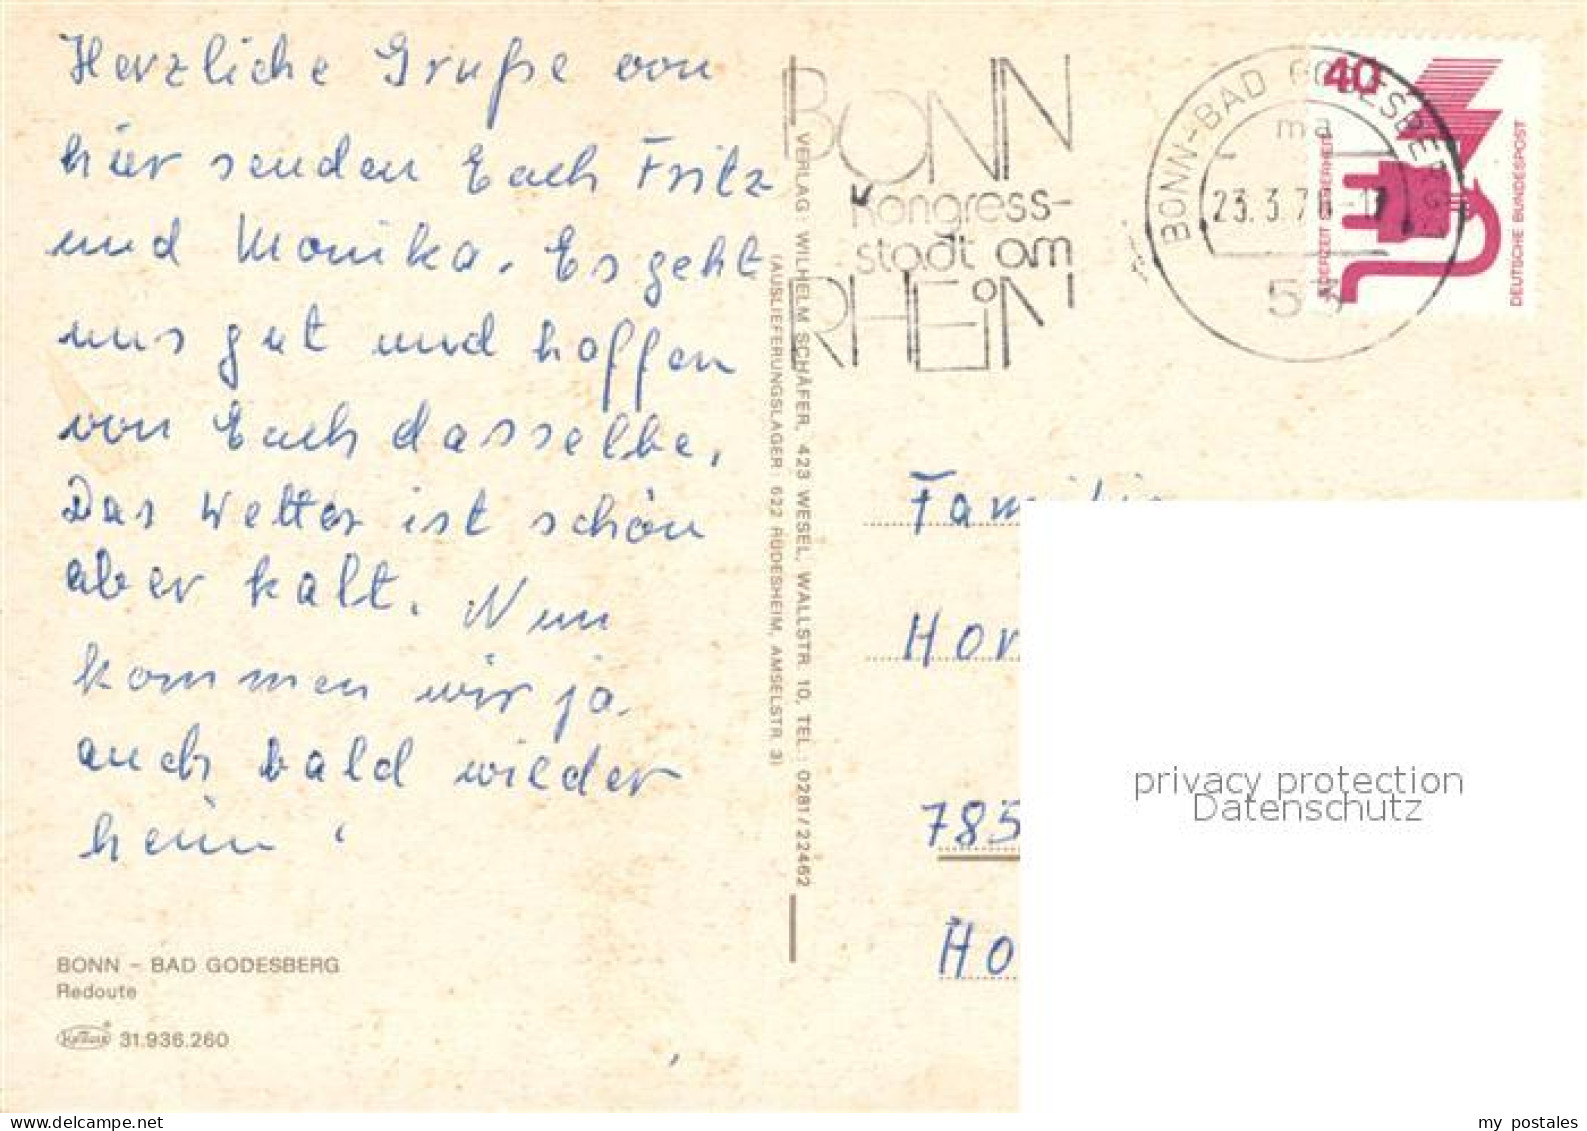 Herzliche Gruße von
hier senden Euch Fritz
und Monika. Es geht
uns gut und hoffen
von Euch dasselbe.
Das Wetter ist schön
aber kalt. Nun
kommen wir ja
auch bald wieder
heim.
BONN – BAD GODESBERG
Redoute
Krüger
31.936.260
VERLAG: WILHELM SCHÄFER, 423 WESEL, WALLSTR. 10, TEL.: 0281/22462
(AUSLIEFERUNGSLAGER: 622 RÜDESHEIM, AMSELSTR. 3)
BONN
Kongress-
stadt am
RHEIN
BONN-BAD GODESBERG
ma
23.3.7
53
40
JEDERZEIT SICHERHEIT
DEUTSCHE BUNDESPOST
Familie
Hor
785
Ho
privacy protection
Datenschutz
delcampe.net
my_postales